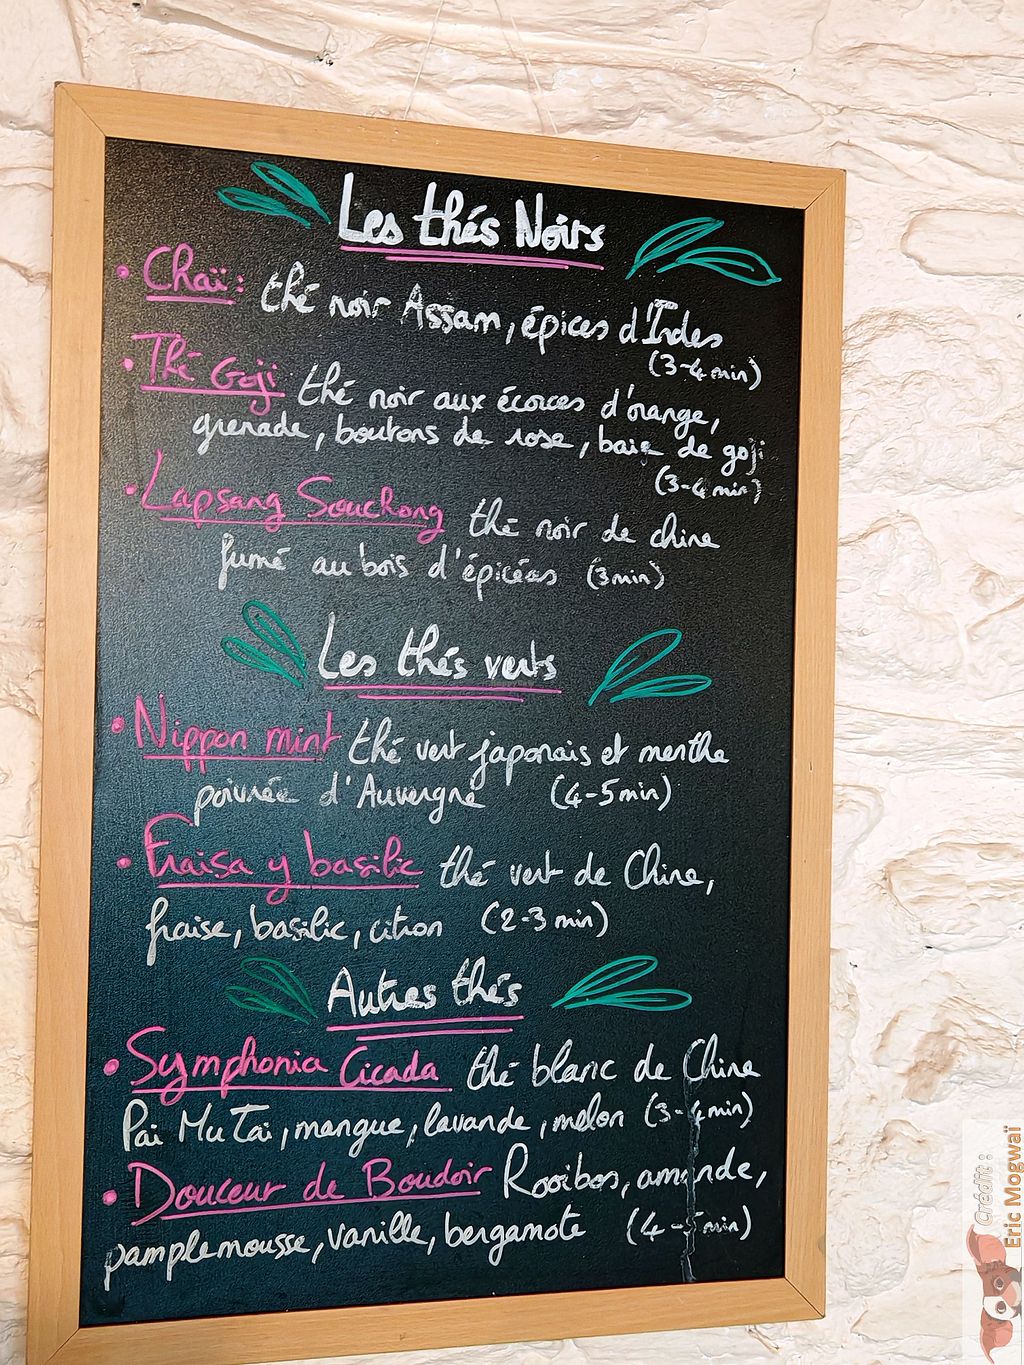 Les thés Noirs
• Chaï : thé noir Assam, épices d'Indes
(3-4 min)
• Thé Goji thé noir aux écorces d'orange,
grenade, boutons de rose, baie de goji
(3-4 min)
• Lapsang Souchong thé noir de chine
fumé au bois d'épicéas (3min)
Les thés verts
• Nippon mint thé vert japonais et menthe
poivrée d'Auvergne (4-5min)
• Fraisa y basilic thé vert de Chine,
fraise, basilic, citron (2-3 min)
Autres thés
• Symphonia Cicada thé blanc de Chine
Paï Mu Taï, mangue, lavande, melon (3-4min)
• Douceur de Boudoir Rooibos, amande,
pamplemousse, vanille, bergamote (4-5min)
Crédit :
Eric Mogwaï